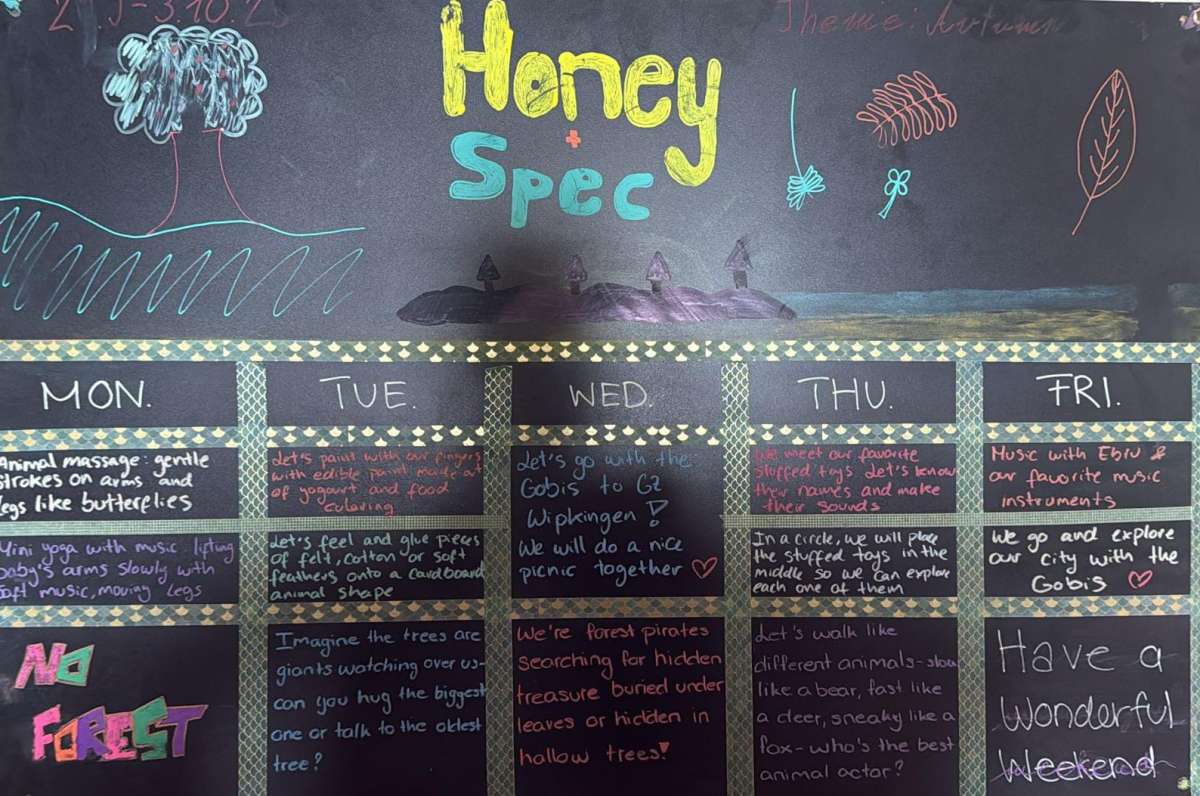 Theme: Autumn
Honey
+
Spec
MON.
TUE.
WED.
THU.
FRI.
Animal massage: gentle
strokes on arms and
legs like butterflies
Let's paint with our fingers
with edible paint made of
of yogourt and food
culoring
Let's go with the
Gobis to GZ
Wipkingen!
We will do a nice
picnic together
We meet our favorite
stuffed toys Let's know
their names and make
their sounds
Music with Ebru &
our favorite music
instruments
Mini yoga with music: lifting
baby's arms slowly with
soft music, moving legs
Let's feel and glue pieces
of felt, cotton or soft
feathers onto a cardboard
animal shape
In a circle, we will place
the stuffed toys in the
middle so we can explore
each one of them
We go and explore
our city with the
Gobis
NO
FOREST
Imagine the trees are
giants watching over us-
can you hug the biggest
one or talk to the oldest
tree?
We're forest pirates
searching for hidden
treasure buried under
leaves or hidden in
hallow trees!
Let's walk like
different animals-slow
like a bear, fast like
a deer, sneaky like a
fox-who's the best
animal actor?
Have a
Wonderful
Weekend